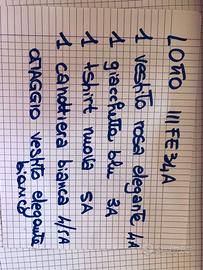 LOTTO III FE 3/4A
1 vestito rosa elegante 4A
1 giacchetta blu 3A
1 tshirt nuova 5A
1 canottiera bianca 4/5A
OMAGGIO vestito elegante
bianco